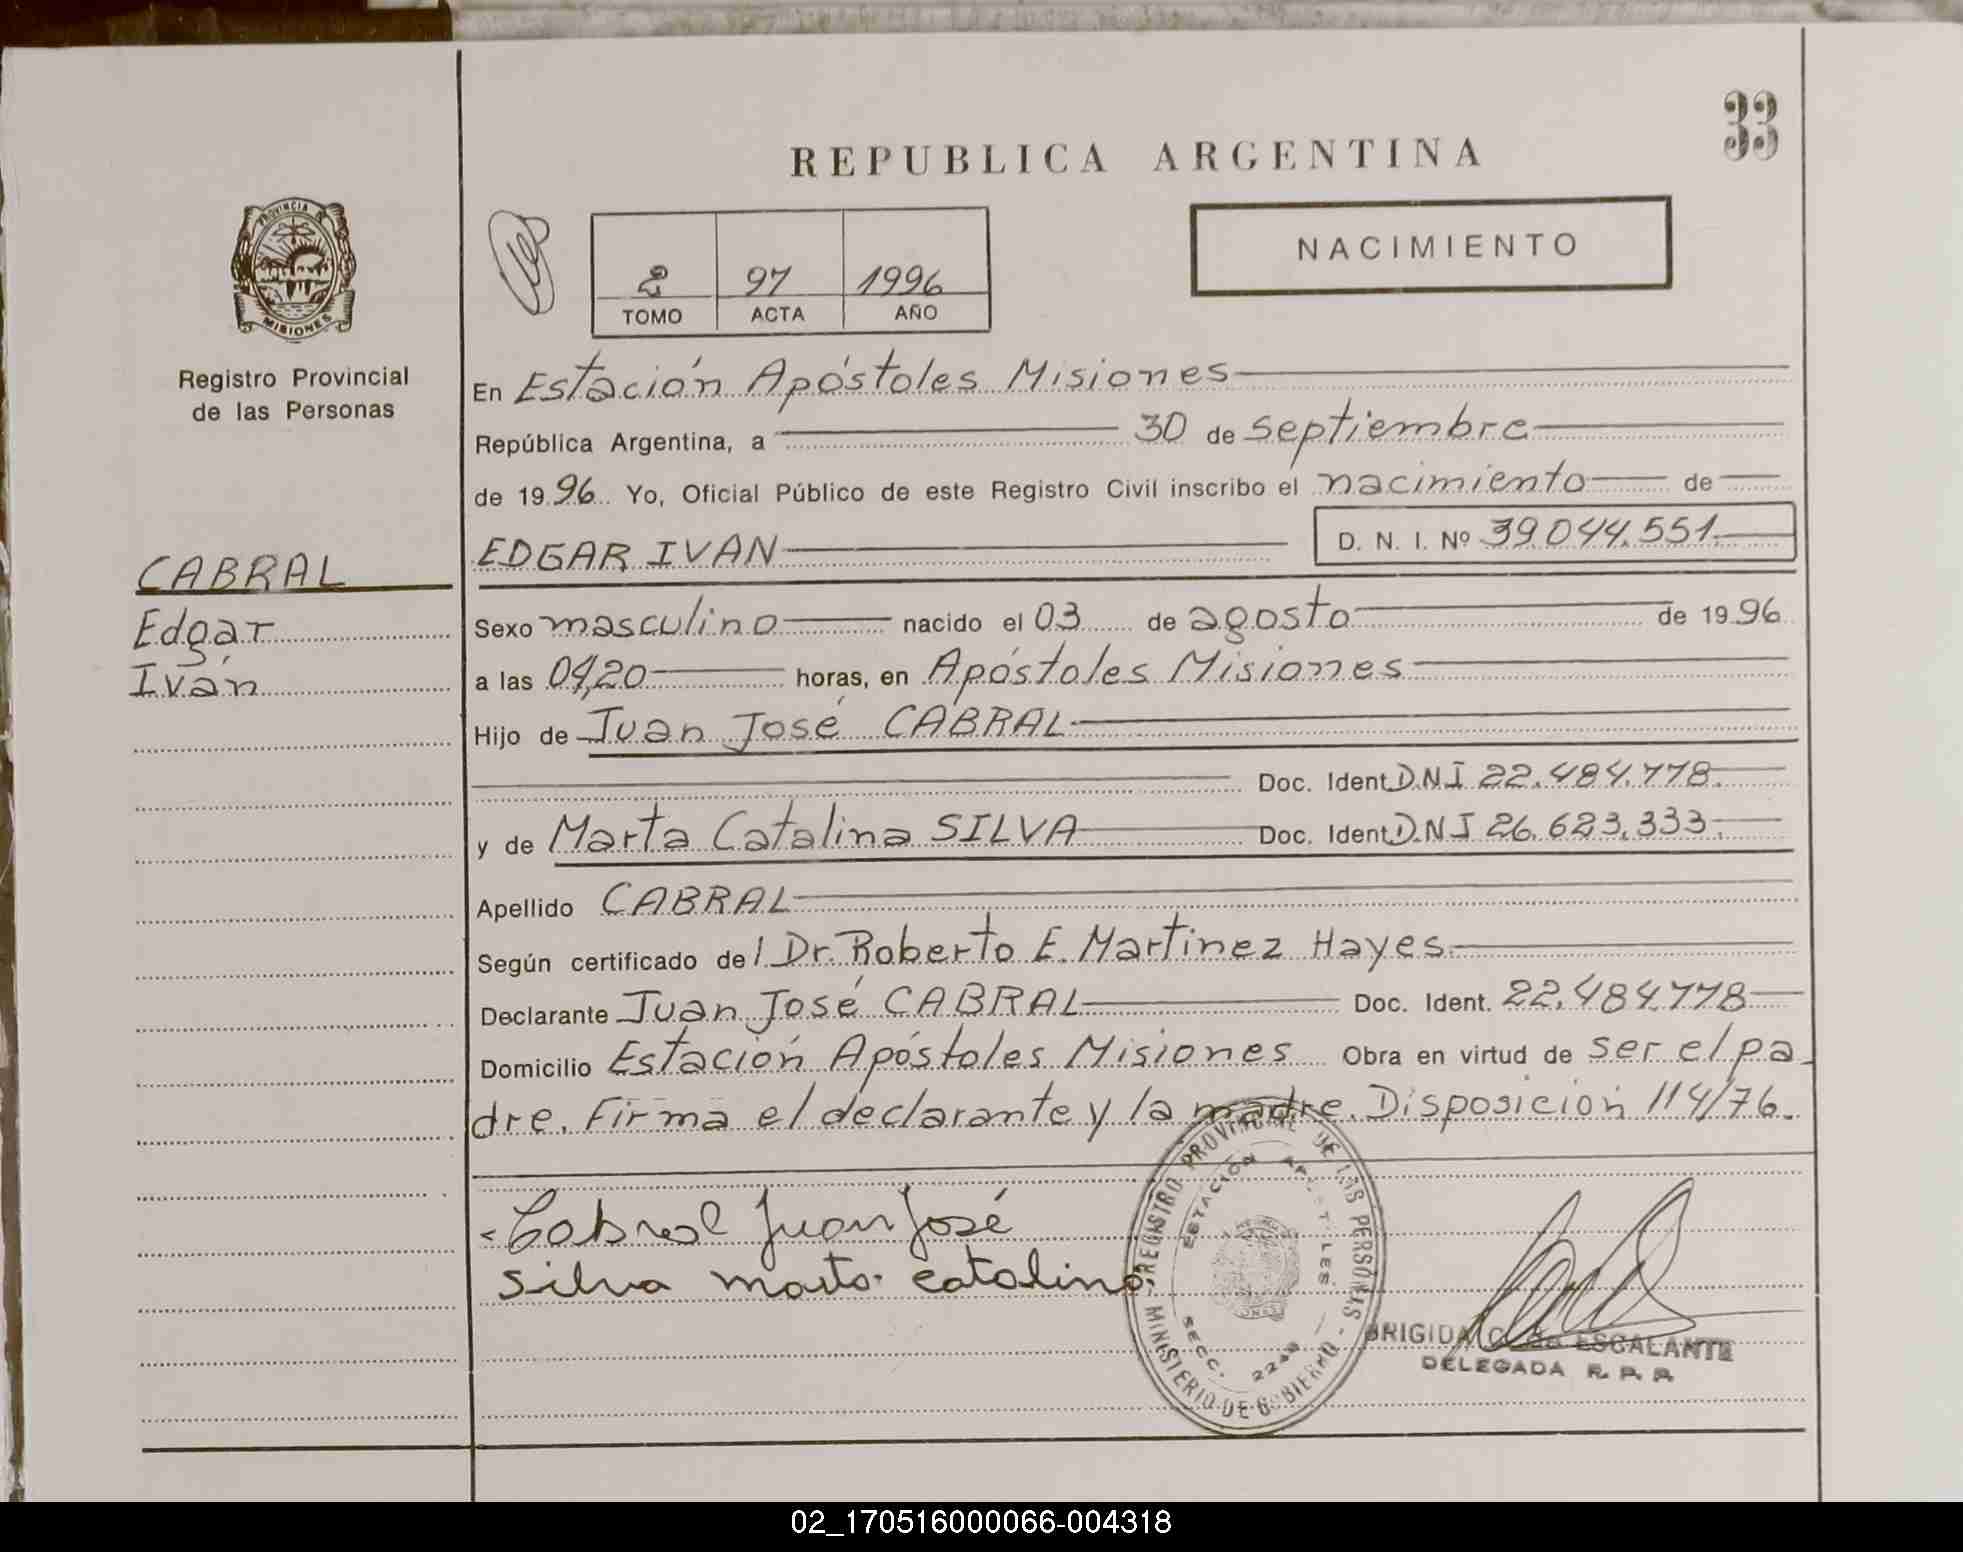 33
REPUBLICA ARGENTINA
PROVINCIA DE
MISIONES
NACIMIENTO
2 97 1996
TOMO ACTA AÑO
Registro Provincial
de las Personas
En Estación Apóstoles Misiones
República Argentina, a 30 de septiembre
de 1996 Yo, Oficial Público de este Registro Civil inscribo el nacimiento de
EDGAR IVAN D. N. I. Nº 39.044.551.
CABRAL
Edgar
Iván
Sexo masculino nacido el 03 de agosto de 1996
a las 04,20 horas, en Apóstoles Misiones
Hijo de Juan José CABRAL
Doc. Ident. DNI 22.484.778.
y de Marta Catalina SILVA Doc. Ident. DNI 26.623.333.
Apellido CABRAL
Según certificado del Dr. Roberto E. Martinez Hayes
Declarante Juan José CABRAL Doc. Ident. 22.484.778
Domicilio Estación Apóstoles Misiones Obra en virtud de ser el pa
dre. Firma el declarante y la madre. Disposición 114/76.
Cabral Juan José
Silva Marta Catalina
REGISTRO PROVINCIAL DE LAS PERSONAS - MINISTERIO DE GOBIERNO -
ESTACIÓN APOSTOLES
SECC.
BRIGIDA C. de ESCALANTE
DELEGADA R. P. P.
02_170516000066-004318